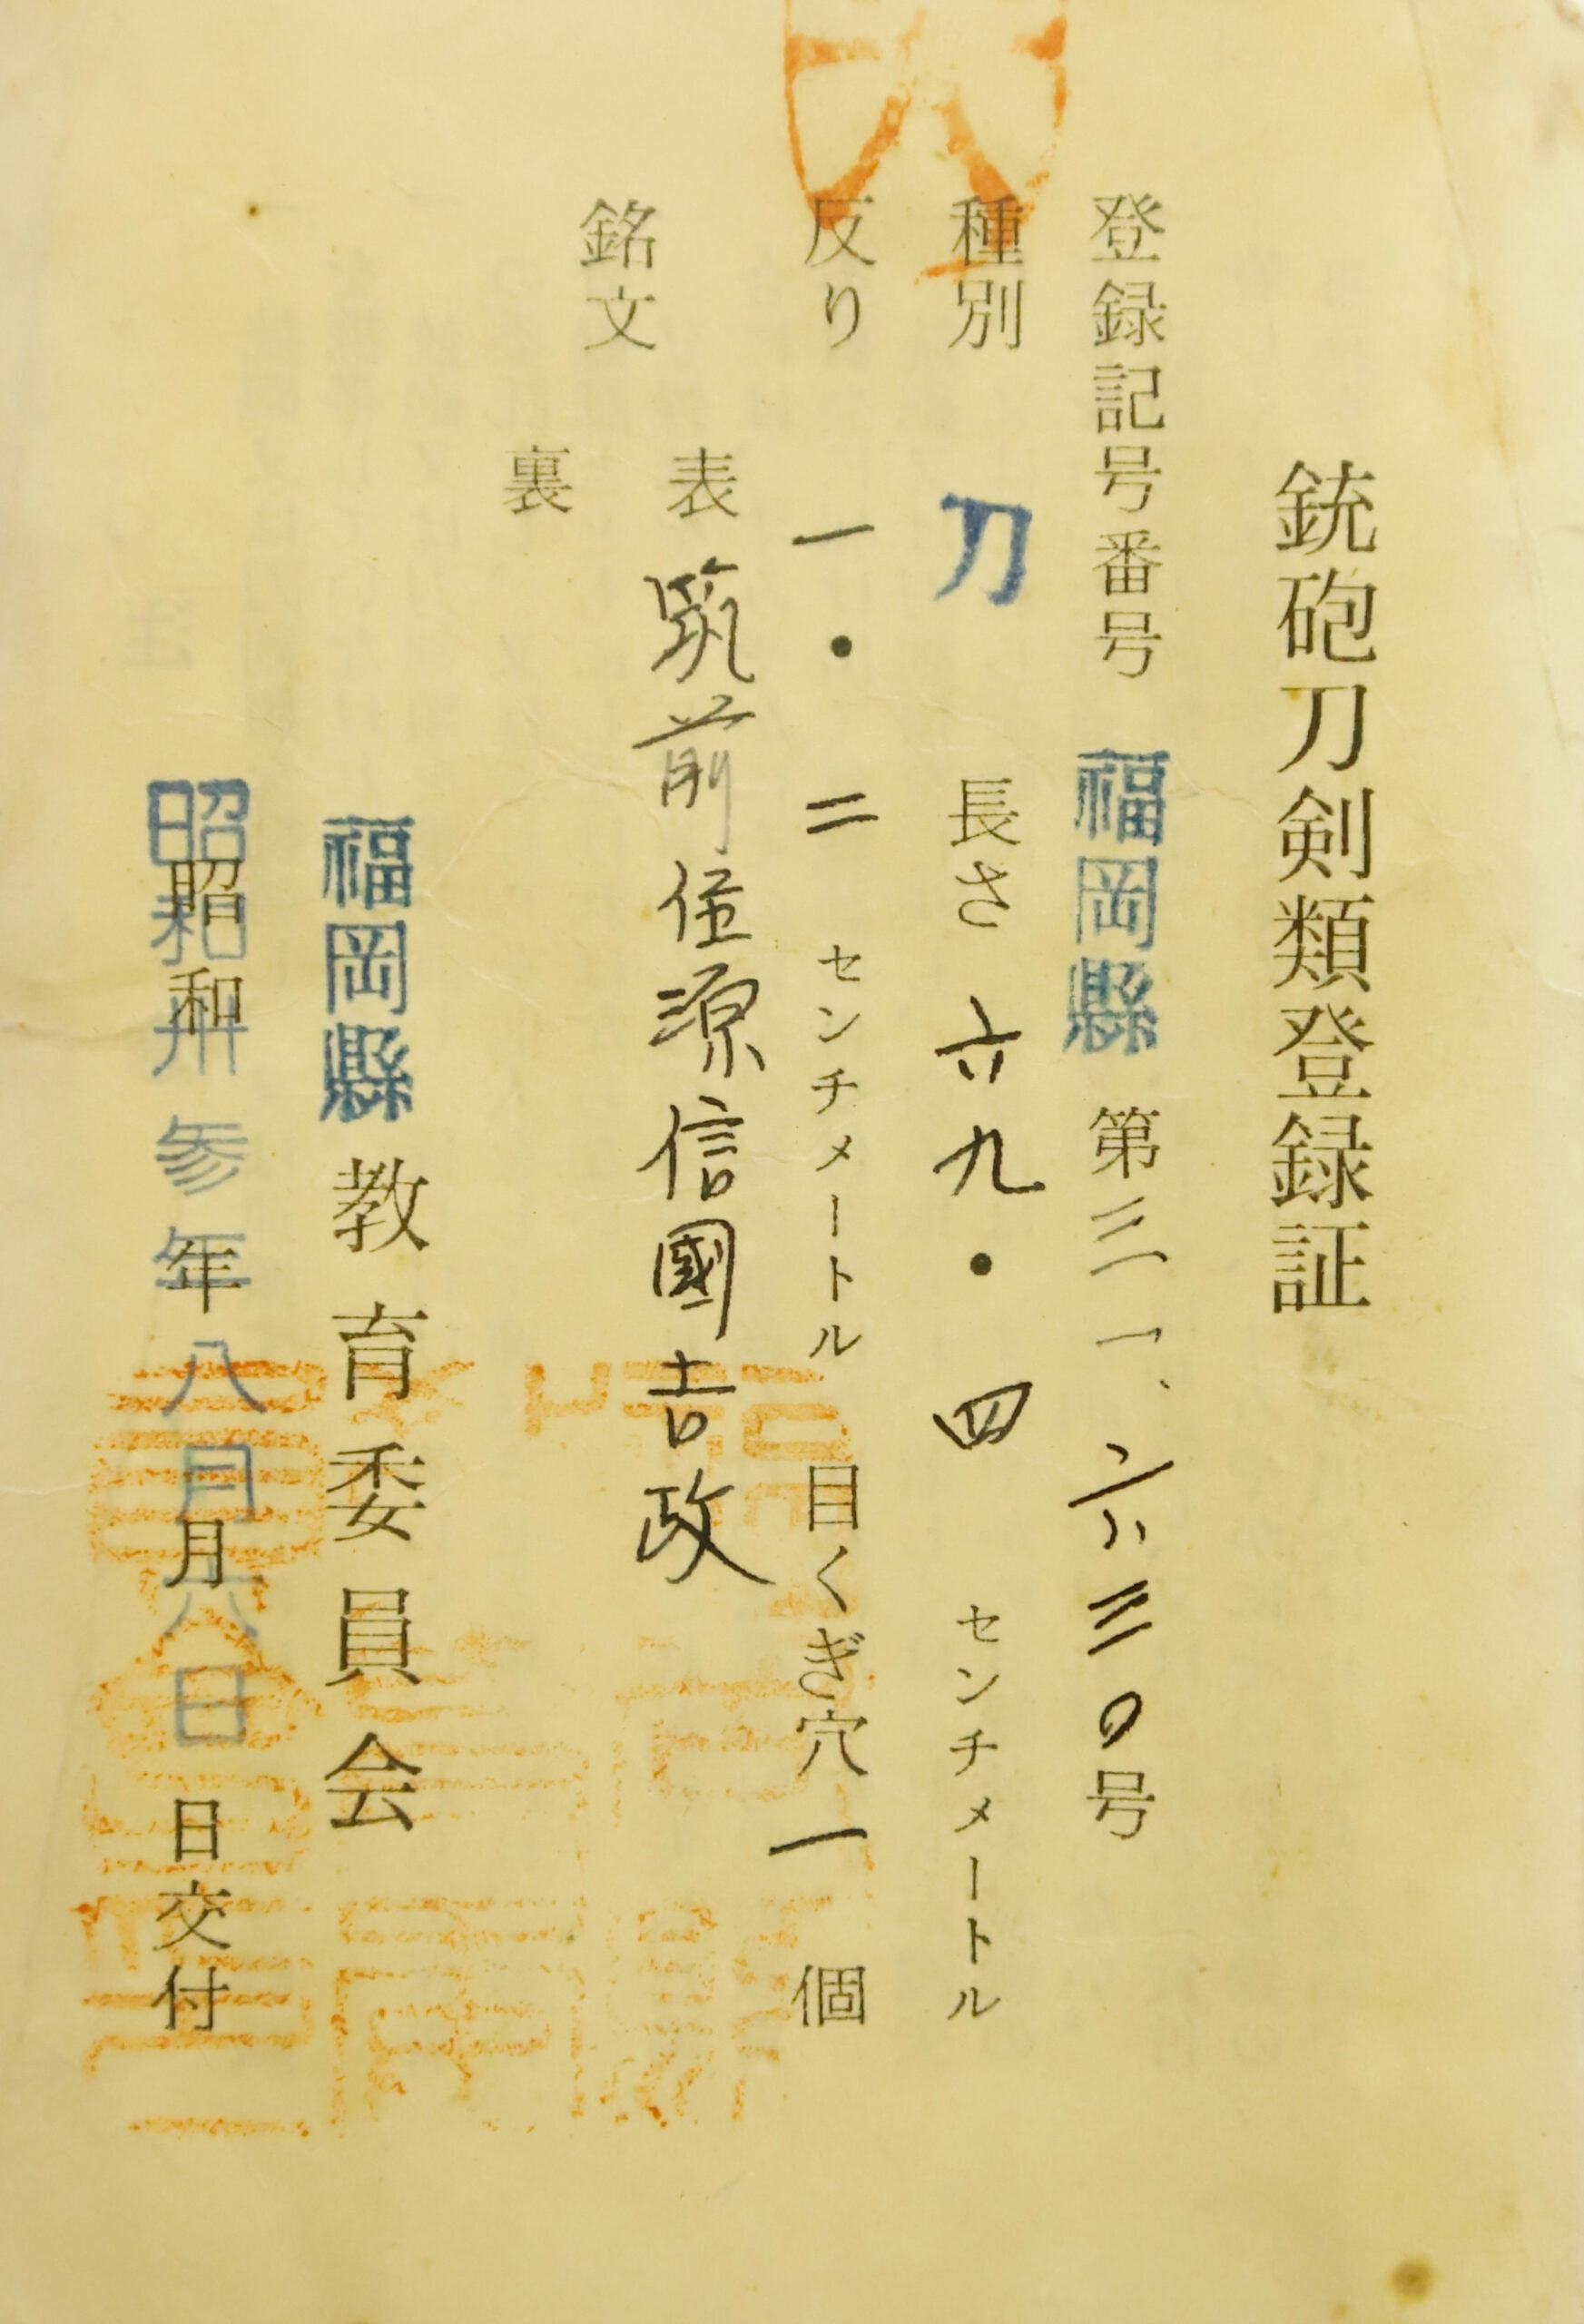 銃砲刀剣類登録証
登録記号番号 福岡縣 第三一、六三〇号
種別 刀 長さ 六九・四 センチメートル
反り 一・二 センチメートル 目くぎ穴 一 個
銘文 表 筑前住源信國吉政
裏
福岡縣教育委員会
昭和卅参年八月六日
昭和 年 月 日交付